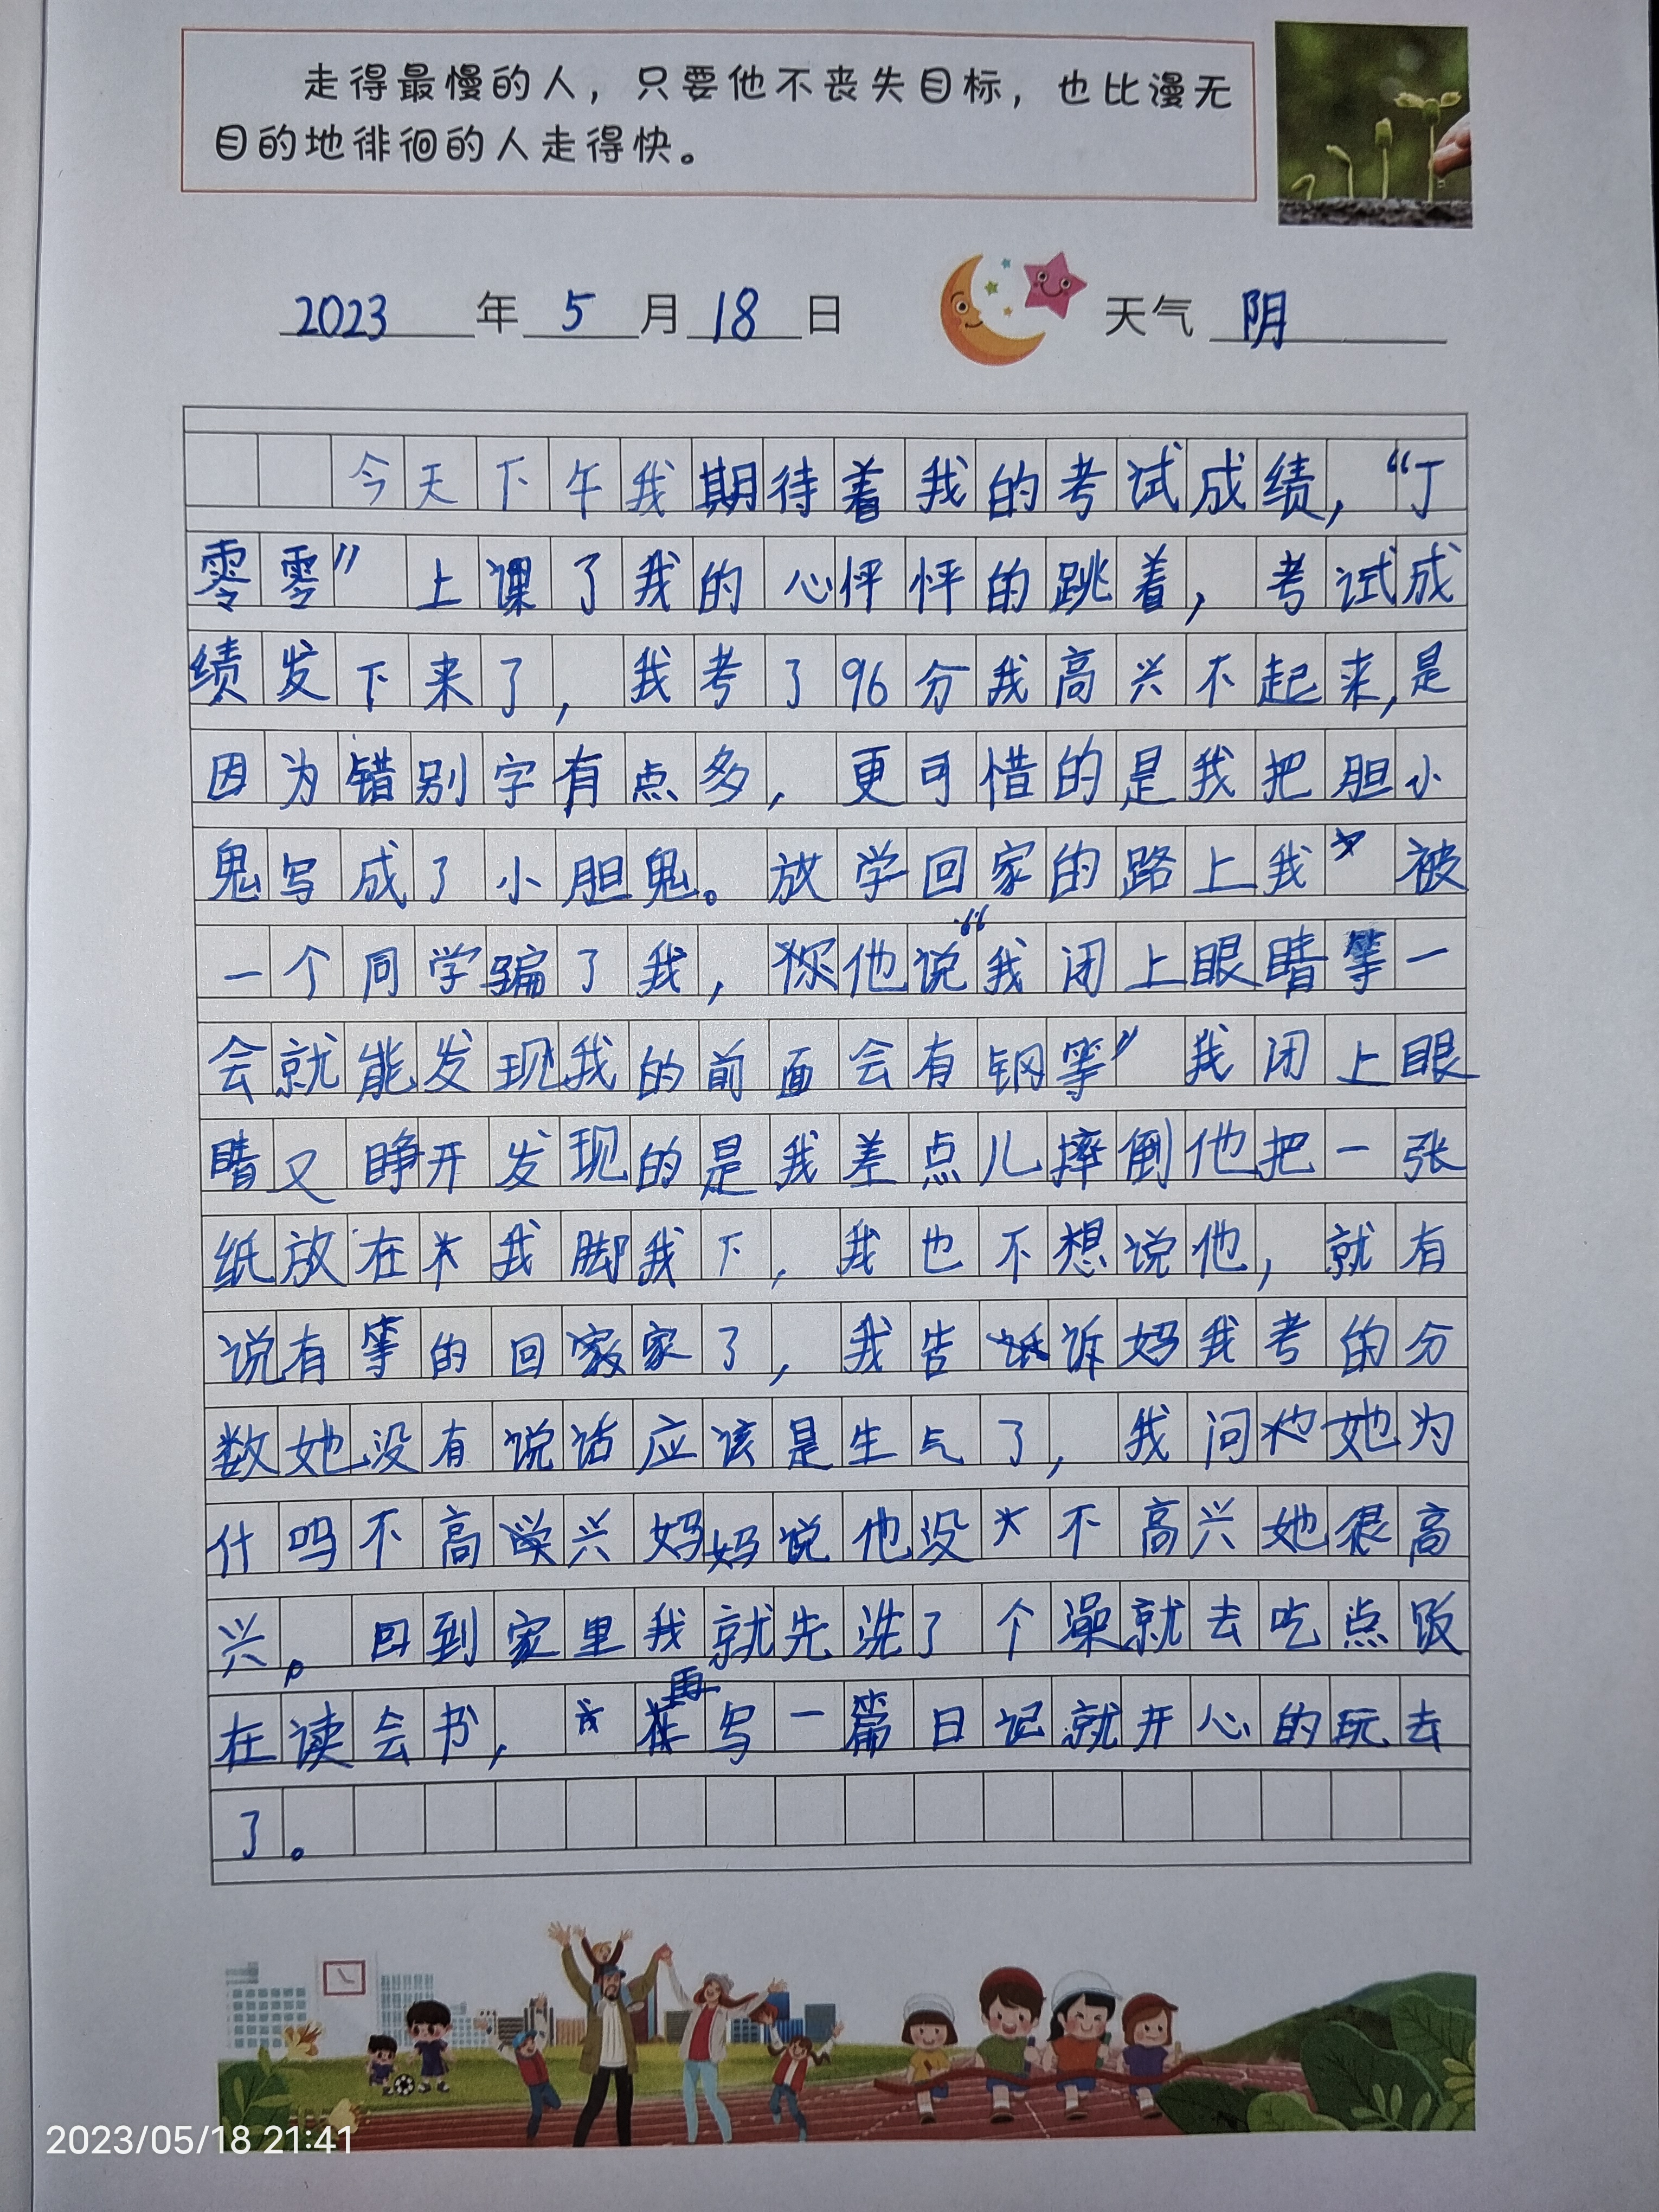 走得最慢的人，只要他不丧失目标，也比漫无
目的地徘徊的人走得快。
2023年5月18日 天气 阴
今天下午我期待着我的考试成绩，“丁
零零” 上课了我的心怦怦的跳着，考试成
绩发下来了，我考了96分我高兴不起来，是
因为错别字有点多，更可惜的是我把胆小
鬼写成了小胆鬼。放学回家的路上我被
一个同学骗了我，他说“我闭上眼睛等一
会就能发现我的前面会有钢等” 我闭上眼
睛又睁开发现的是我差点儿摔倒他把一张
纸放在我脚我下，我也不想说他，就有
说有等的回家了，我告诉妈我考的分
数她没有说话应该是生气了，我问她为
什吗不高兴妈妈说他没不高兴她很高
兴。回到家里我就先洗了个澡就去吃点饭
在读会书，再写一篇日记就开心的玩去
了。
2023/05/18 21:41